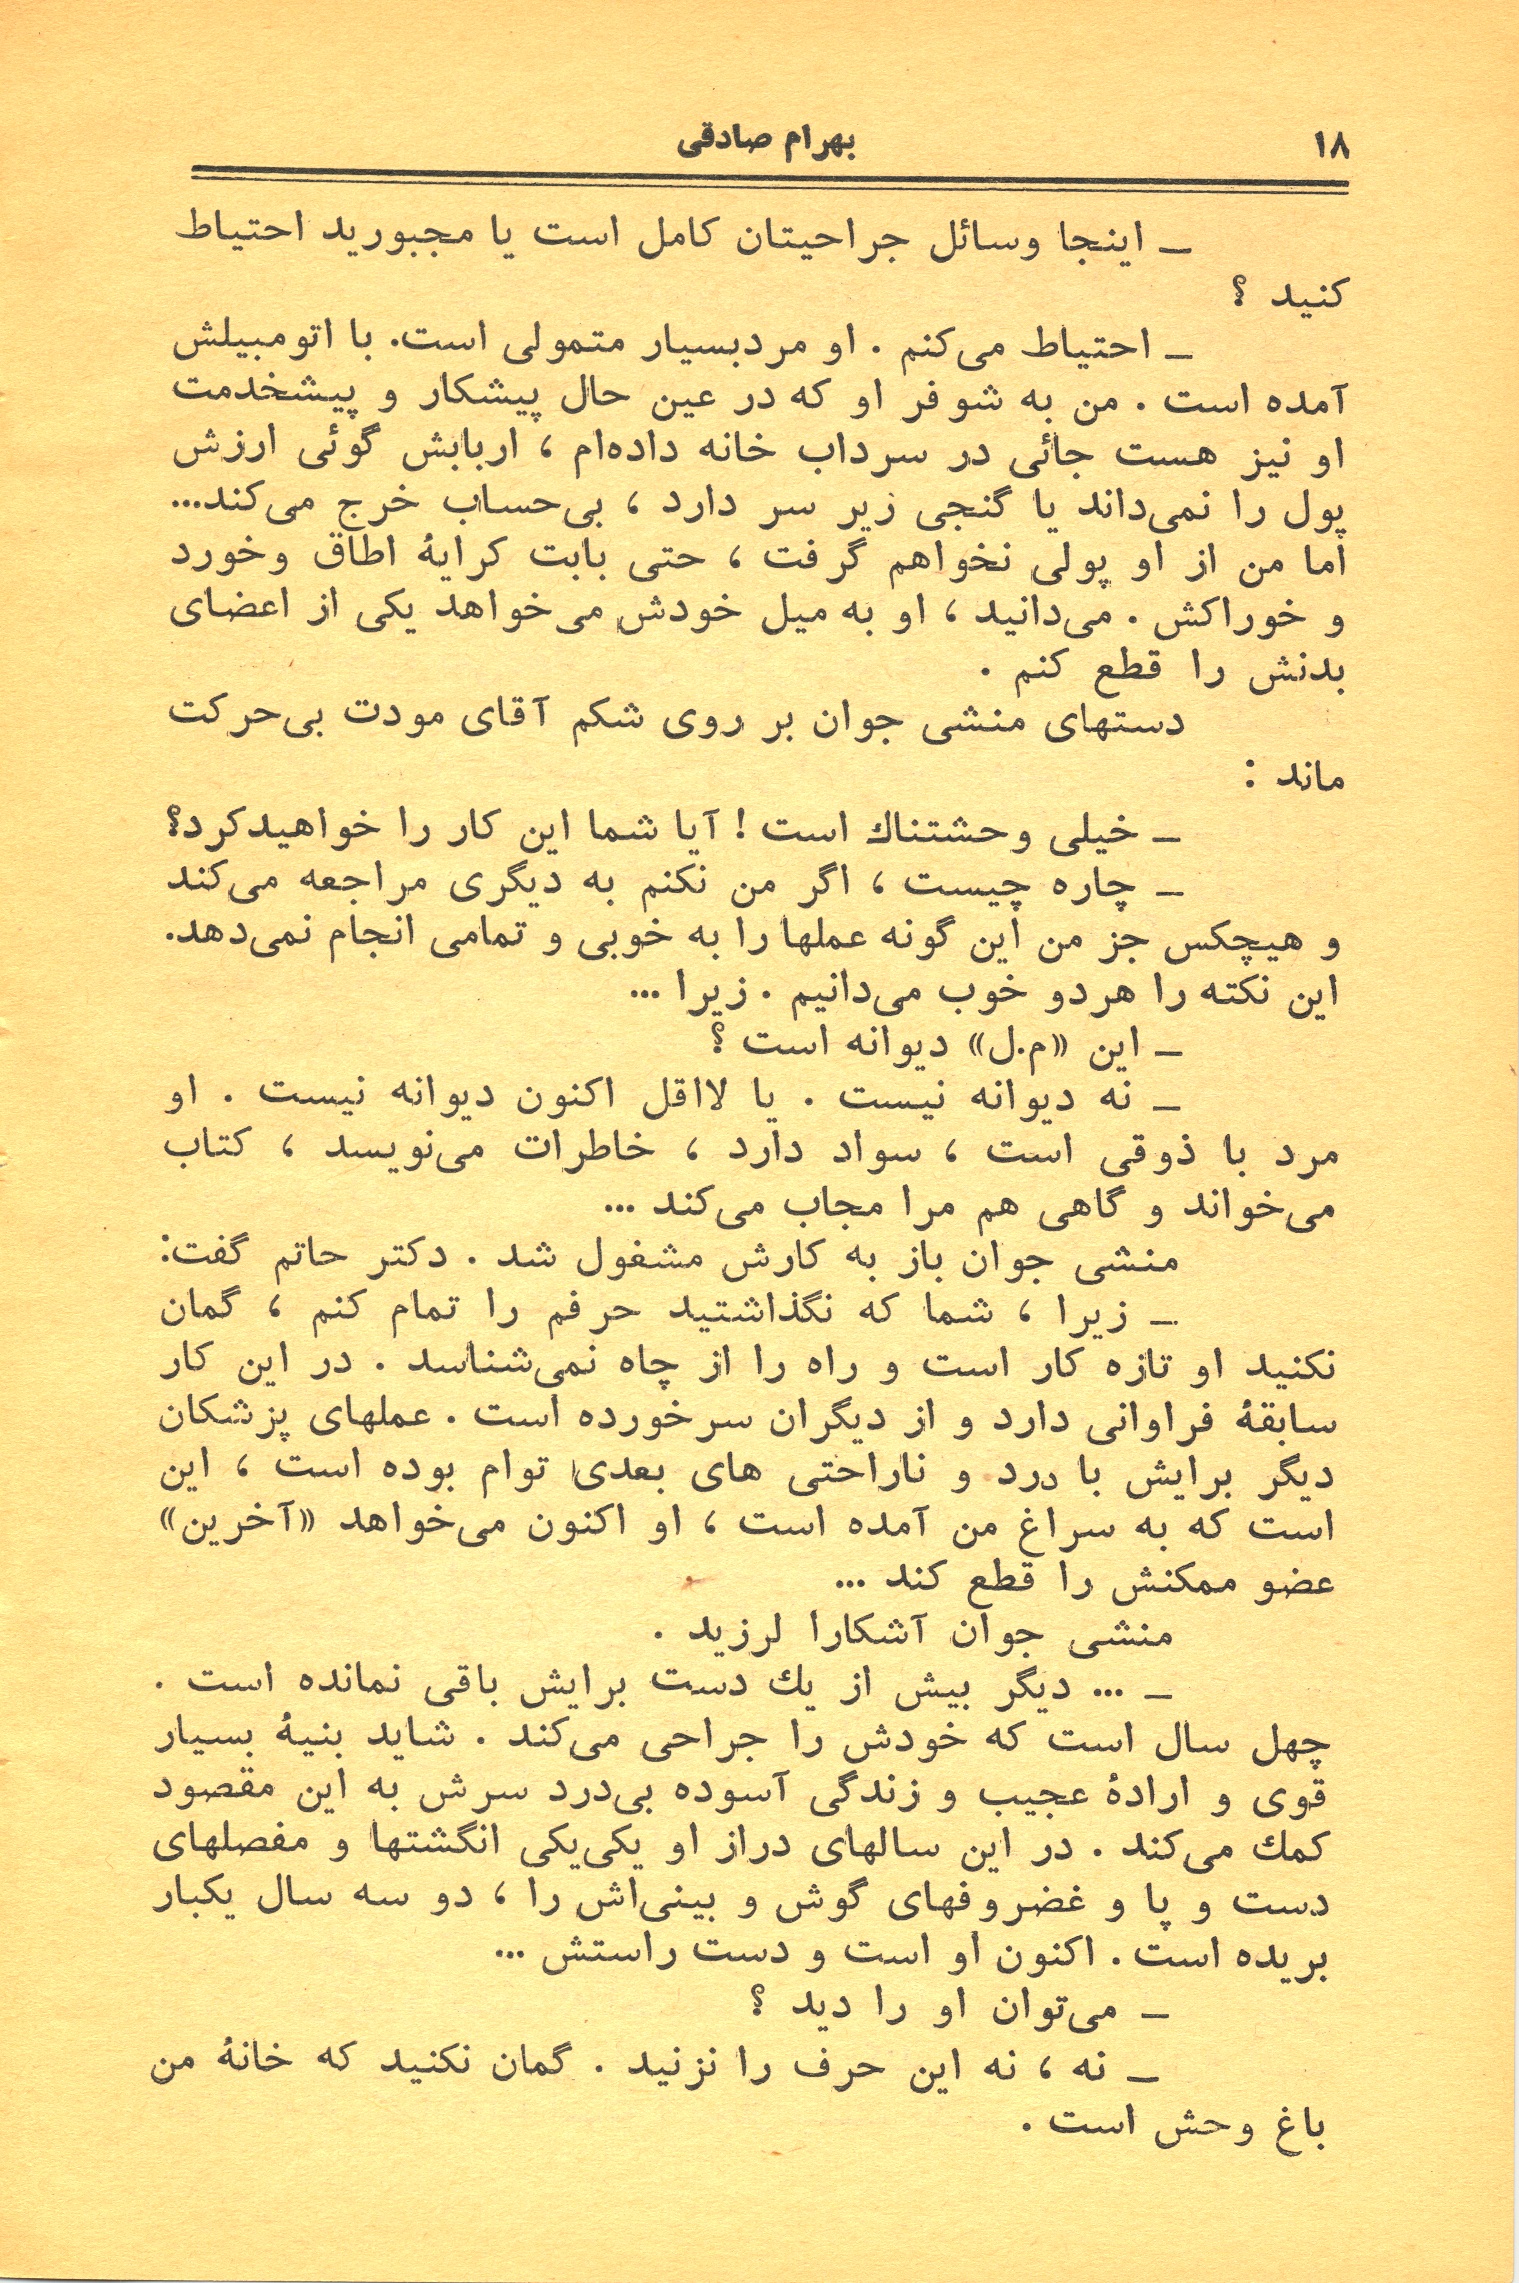 ۱۸
بهرام صادقی
ـ اینجا وسائل جراحیتان کامل است یا مجبورید احتیاط
کنید ؟
ـ احتیاط می‌کنم . او مردبسیار متمولی است. با اتومبیلش
آمده است . من به شوفر او که در عین حال پیشکار و پیشخدمت
او نیز هست جائی در سرداب خانه داده‌ام ، اربابش گوئی ارزش
پول را نمی‌داند یا گنجی زیر سر دارد ، بی‌حساب خرج می‌کند...
اما من از او پولی نخواهم گرفت ، حتی بابت کرایهٔ اطاق وخورد
و خوراکش . می‌دانید ، او به میل خودش می‌خواهد یکی از اعضای
بدنش را قطع کنم .
دستهای منشی جوان بر روی شکم آقای مودت بی‌حرکت
ماند :
ـ خیلی وحشتناك است ! آیا شما این کار را خواهیدکرد؟
ـ چاره چیست ، اگر من نکنم به دیگری مراجعه می‌کند
و هیچکس جز من این گونه عملها را به خوبی و تمامی انجام نمی‌دهد.
این نکته را هردو خوب می‌دانیم . زیرا ...
ـ این «م.ل» دیوانه است ؟
ـ نه دیوانه نیست . یا لااقل اکنون دیوانه نیست . او
مرد با ذوقی است ، سواد دارد ، خاطرات می‌نویسد ، کتاب
می‌خواند و گاهی هم مرا مجاب می‌کند ...
منشی جوان باز به کارش مشغول شد . دکتر حاتم گفت:
ـ زیرا ، شما که نگذاشتید حرفم را تمام کنم ، گمان
نکنید او تازه کار است و راه را از چاه نمی‌شناسد . در این کار
سابقهٔ فراوانی دارد و از دیگران سرخورده است . عملهای پزشکان
دیگر برایش با درد و ناراحتی های بعدی توام بوده است ، این
است که به سراغ من آمده است ، او اکنون می‌خواهد «آخرین»
عضو ممکنش را قطع کند ...
منشی جوان آشکارا لرزید .
ـ ... دیگر بیش از یك دست برایش باقی نمانده است .
چهل سال است که خودش را جراحی می‌کند . شاید بنیهٔ بسیار
قوی و ارادهٔ عجیب و زندگی آسوده بی‌درد سرش به این مقصود
کمك می‌کند . در این سالهای دراز او یکی‌یکی انگشتها و مفصلهای
دست و پا و غضروفهای گوش و بینی‌اش را ، دو سه سال یکبار
بریده است . اکنون او است و دست راستش ...
ـ می‌توان او را دید ؟
ـ نه ، نه این حرف را نزنید . گمان نکنید که خانهٔ من
باغ وحش است .